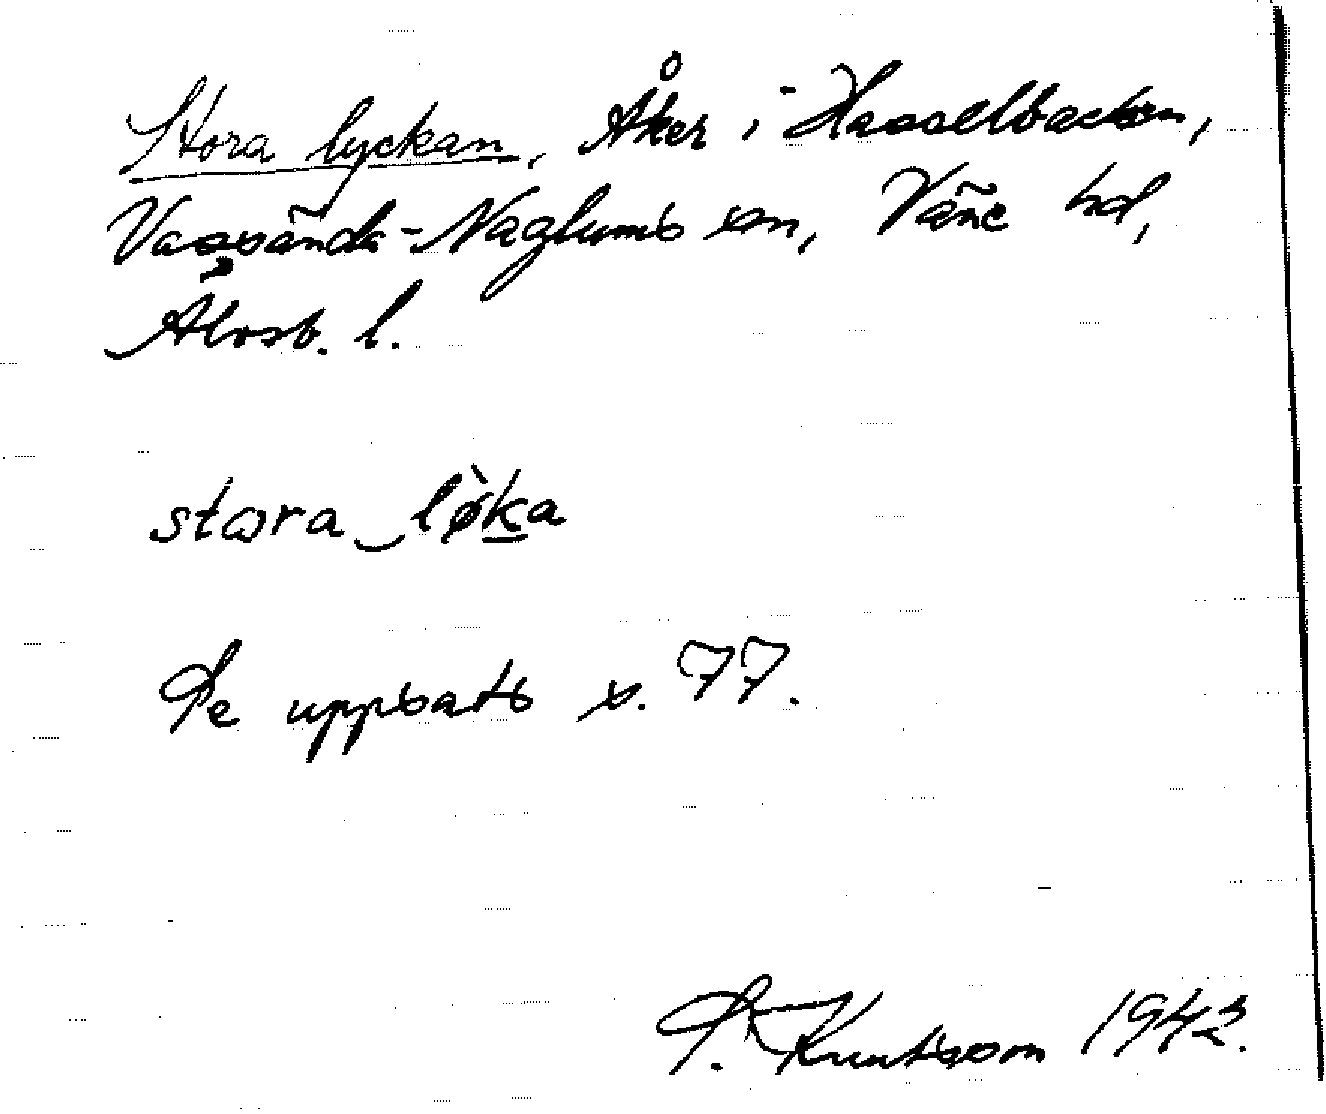 Stora lyckan, Åker i Hasselbacken,
Vassända-Naglums sn, Väne hd,
Älvsb. l.
stora løka
Se uppsats s. 77.
S. Knutsson 1943.